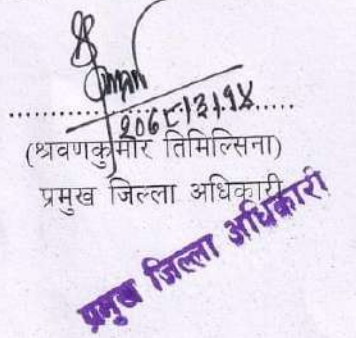 २०६८।३।१४
(श्रवणकुमार तिमिल्सिना)
प्रमुख जिल्ला अधिकारी
प्रमुख जिल्ला अधिकारी